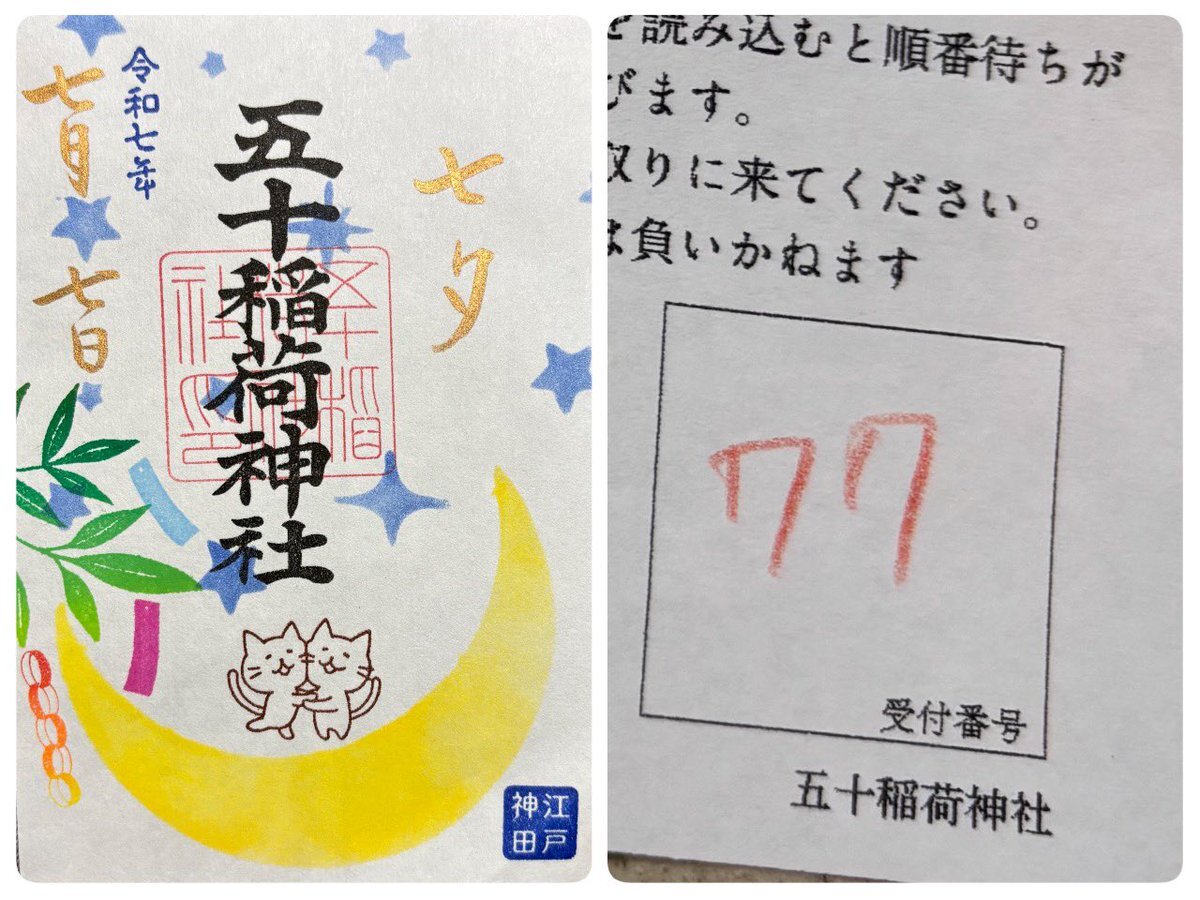 七夕
五十稲荷神社
令和七年
七月七日
江戸
神田
を読み込むと順番待ちが
びます。
取りに来てください。
は負いかねます
77
受付番号
五十稲荷神社